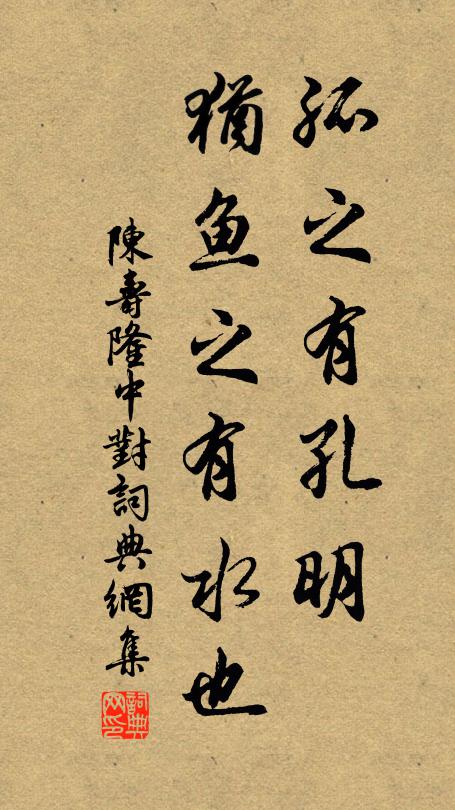 孤之有孔明
猶鱼之有水也
陳壽隆中對詞典網集
詞典网印